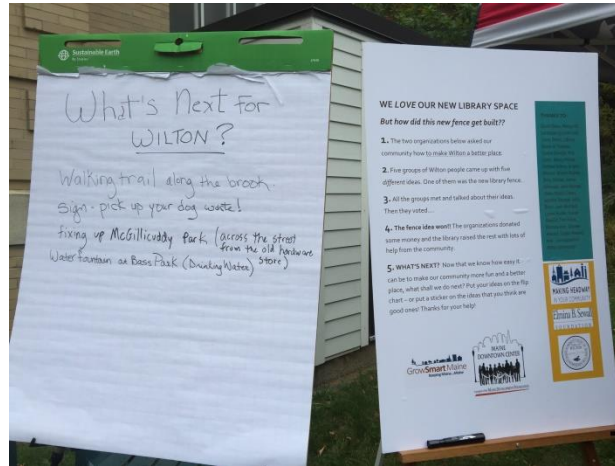 Sustainable Earth
What's Next For
WILTON?
Walking trail along the brook
sign - pick up your dog waste!
fixing up McGillicuddy Park (across the street
from the old hardware
store)
Water fountain at Bass Park (Drinking Water)
WE LOVE OUR NEW LIBRARY SPACE
But how did this new fence get built??
1. The two organizations below asked our
community how to make Wilton a better place.
2. Five groups of Wilton people came up with five
different ideas. One of them was the new library fence.
3. All the groups met and talked about their ideas.
Then they voted ...
4. The fence idea won!! The organizations donated
some money and the library raised the rest with lots of
help from the community.
5. WHAT'S NEXT? Now that we know how easy it
can be to make our community more fun and a better
place, what shall we do next? Put your ideas on the flip
chart – or put a sticker on the ideas that you think are
good ones! Thanks for your help!
GrowSmart Maine
MAINE
DOWNTOWN CENTER
MAKING HEADWAY
IN YOUR COMMUNITY
Elmina B. Sewall
FOUNDATION